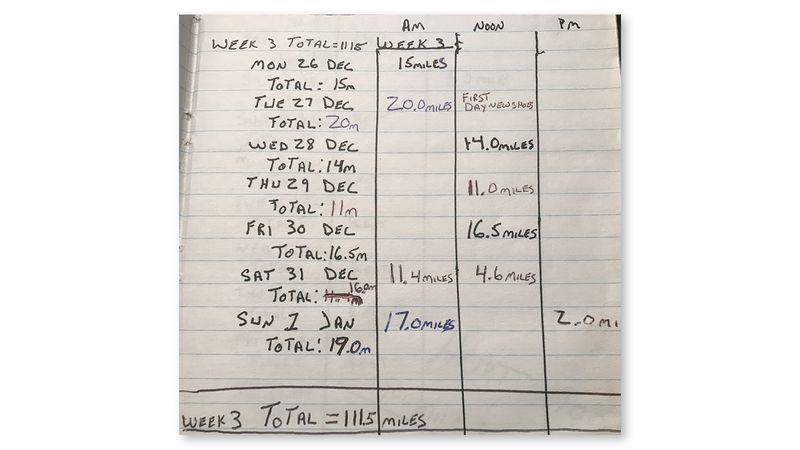 AM NOON PM
WEEK 3 TOTAL=1115 WEEK 3
MON 26 DEC 15 MILES
TOTAL: 15m
TUE 27 DEC 20.0 MILES FIRST
DAY NEW SHOES
TOTAL: 20m
WED 28 DEC 14.0 MILES
TOTAL: 14m
THU 29 DEC 11.0 MILES
TOTAL: 11m
FRI 30 DEC 16.5 MILES
TOTAL: 16.5m
SAT 31 DEC 11.4 MILES 4.6 MILES
TOTAL: 16.0m
SUN 1 JAN 17.0 MILES 2.0 MI
TOTAL: 19.0m
WEEK 3 TOTAL = 111.5 MILES